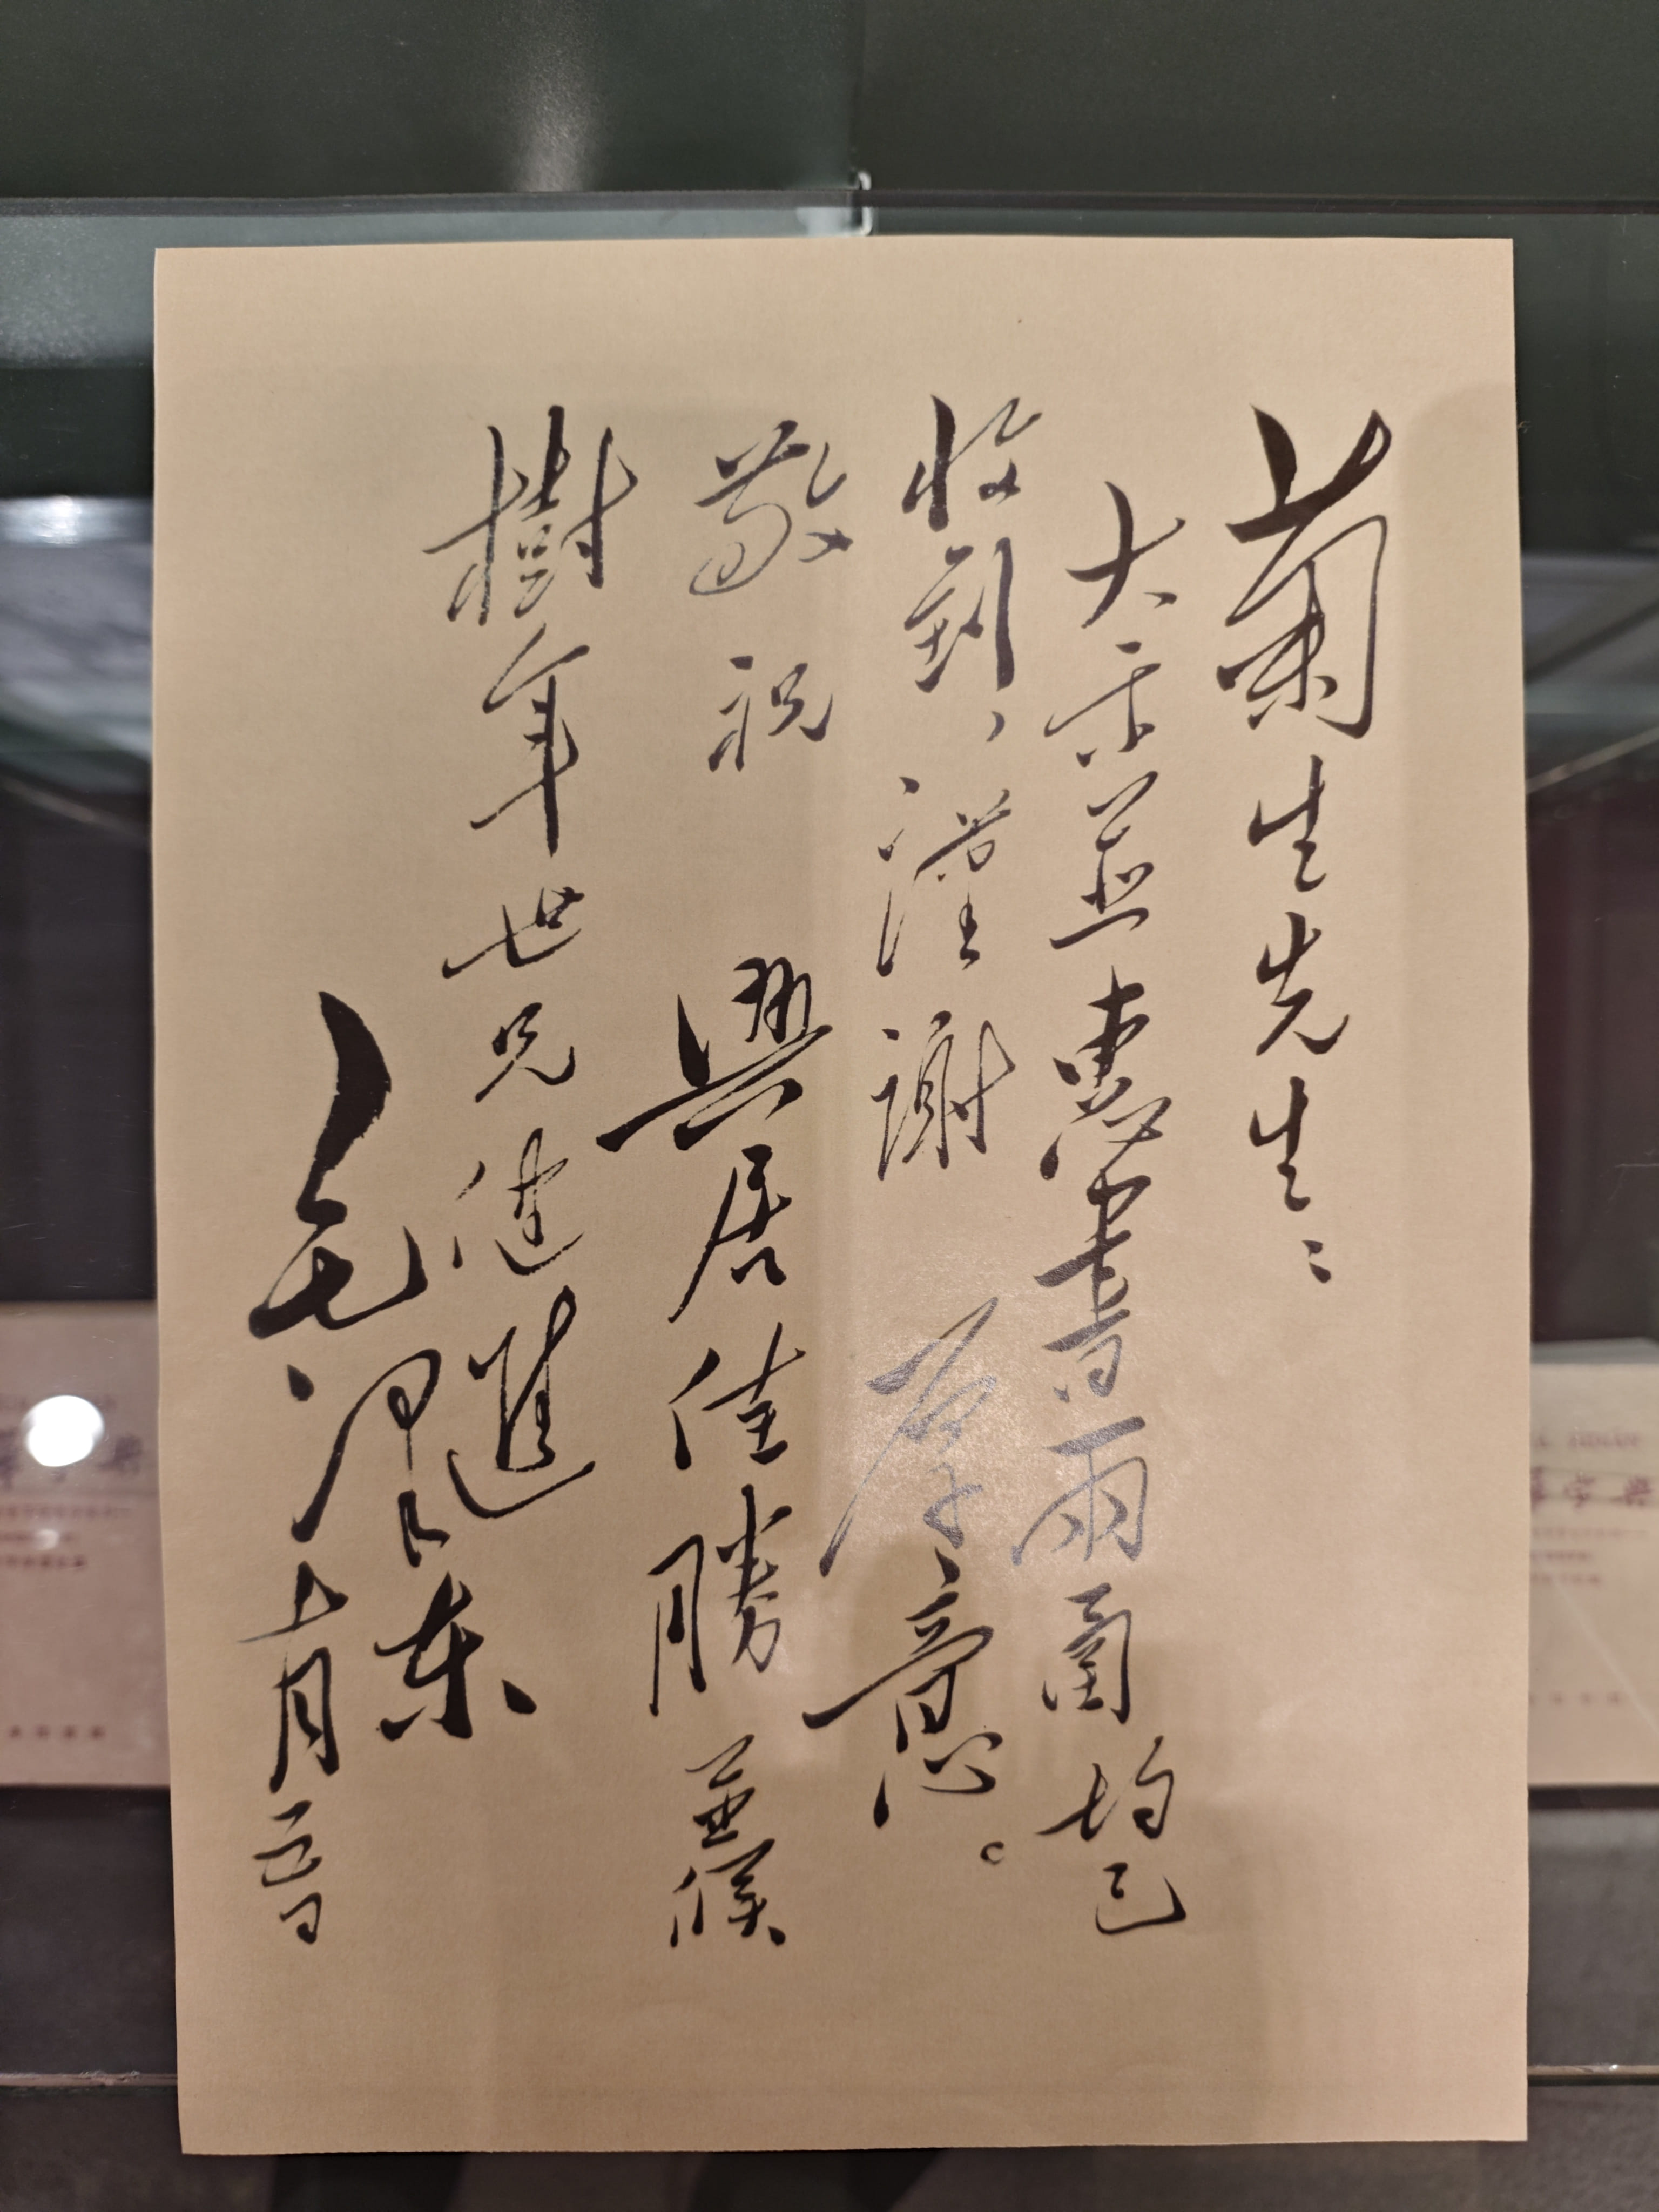 菊生先生：
大示並惠書兩函均已
收到，謹謝 厚意。
敬祝 興居佳勝 並候
樹年世兄健進
毛澤东
月 日